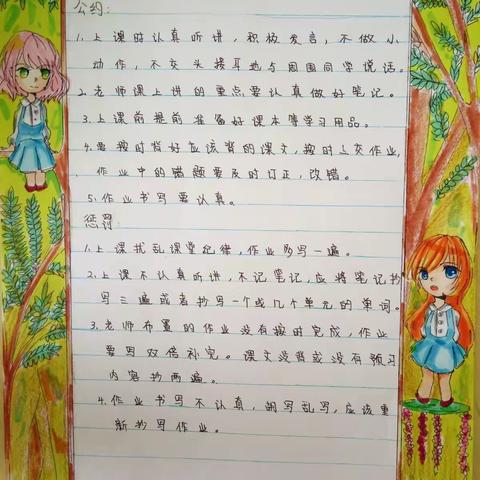 公约:
1.上课时认真听讲,积极发言,不做小
动作,不交头接耳地与周围同学说话。
2.老师课上讲的重点要认真做好笔记。
3.上课前提前准备好课本等学习用品。
4.要按时背好应该背的课文,按时上交作业,
作业中的错题要及时订正,改错。
5.作业书写要认真。
惩罚:
1.上课扰乱课堂纪律,作业多写一遍。
2.上课不认真听讲,不记笔记,应将笔记抄
写三遍或者抄写一个或几个单元的单词。
3.老师布置的作业没有按时完成,作业
要写双倍补完。课文没背或没有预习
内容抄两遍。
4.作业书写不认真,胡写乱写,应该重
新抄写作业。